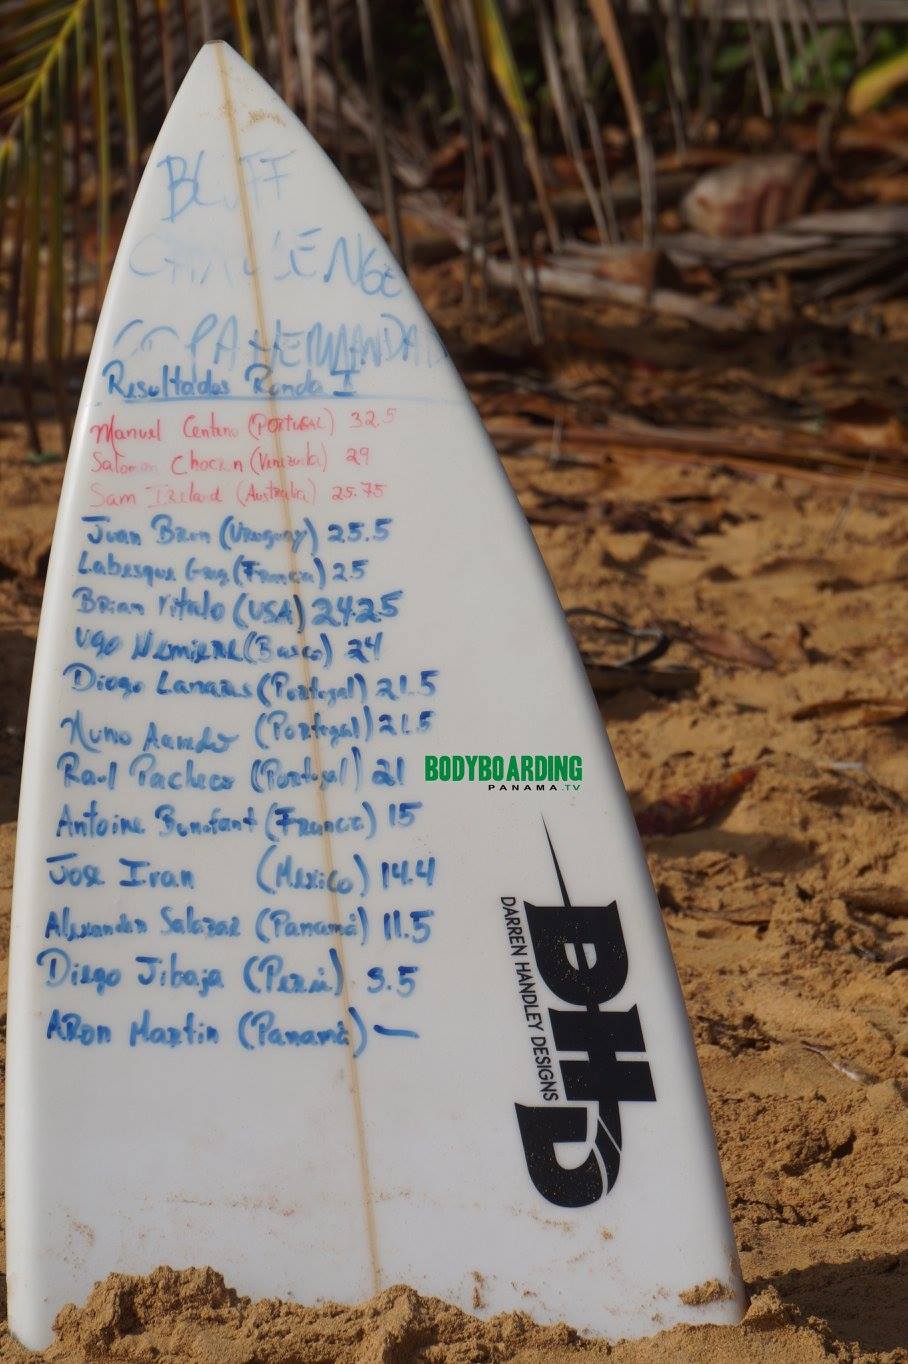 BLUFF
CHALLENGE
COPA HERMANDAD
Resultados Ronda I
Manuel Centeno (PORTUGAL) 32.5
Salomon Chocron (Venezuela) 29
Sam Ireland (Australia) 25.75
Juan Bron (Uruguay) 25.5
Labesque Greg (Francia) 25
Brian Vitalo (USA) 24.25
Ugo (Basco) 24
Diogo (Portugal) 21.5
Nuno (Portugal) 21.5
Raul Pacheco (Portugal) 21
Antoine Bonafant (Francia) 15
Jose Ivan (Mexico) 14.4
Alexander Salazar (Panamá) 11.5
Diego Jibaja (Perú) 9.5
ARon Martin (Panamá) —
BODYBOARDING
PANAMA.TV
DHD
DARREN HANDLEY DESIGNS